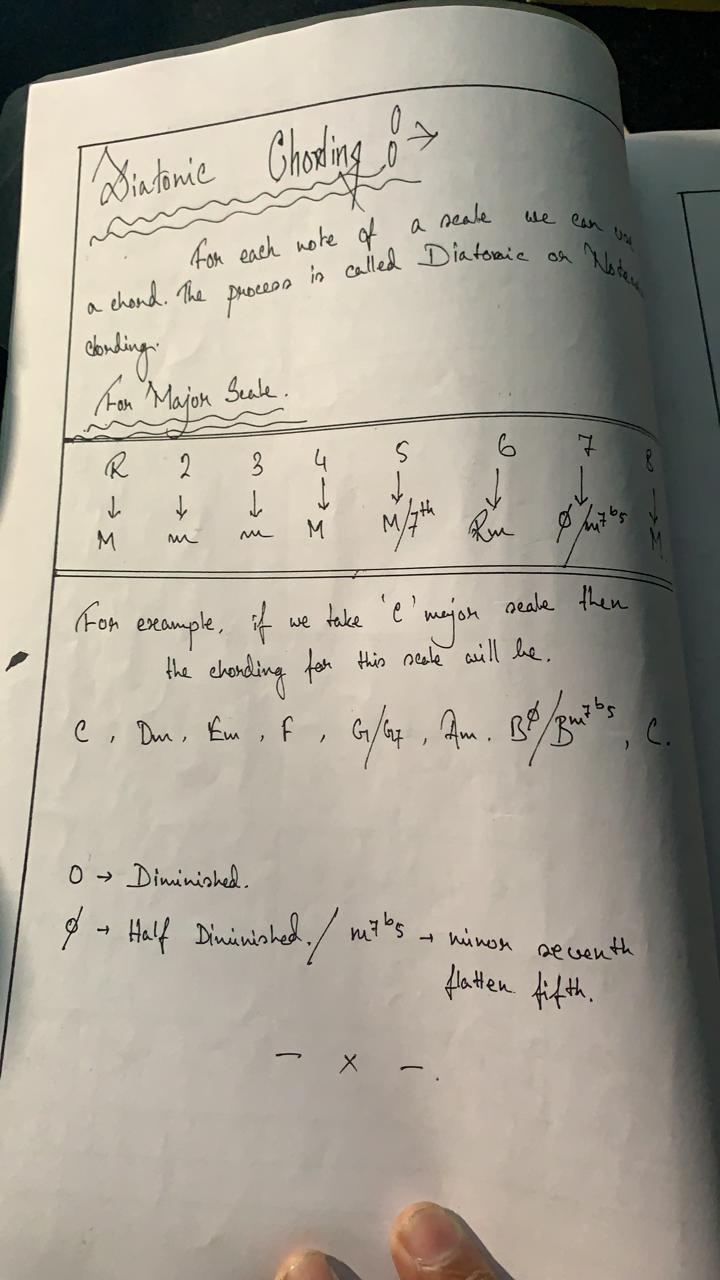 Diatonic Chording :→
For each note of a scale we can
a chord. The process is called Diatonic or
chording.
For Major Scale.
R 2 3 4 5 6 7 8
↓ ↓ ↓ ↓ ↓ ↓ ↓ ↓
M m m M M/7th Rm ø/m7b5 M
For example, if we take 'C' major scale then
the chording for this scale will be.
C, Dm, Em, F, G/G7, Am. Bø/Bm7b5, C.
0 → Diminished.
ø → Half Diminished./ m7b5 → minor seventh
flatten fifth.
— x —.